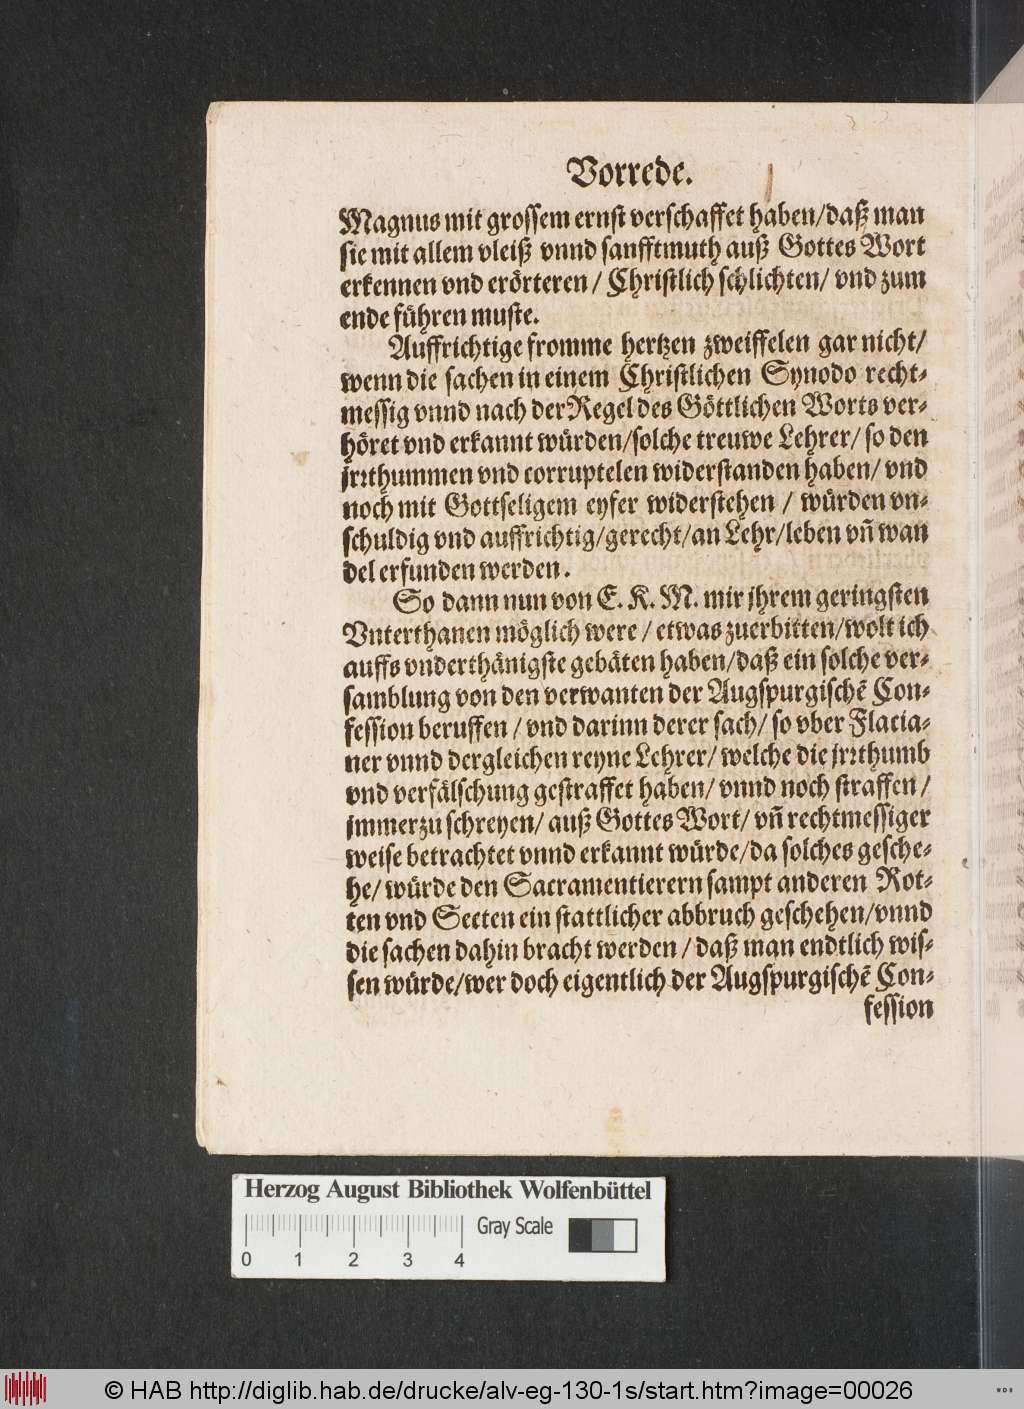 Vorrede.
Magnus mit grossem ernst verschaffet haben/daß man
sie mit allem vleiß vnnd sanfftmuth auß Gottes Wort
erkennen vnd erörteren / Christlich schlichten/ vnd zum
ende führen muste.
Auffrichtige fromme hertzen zweiffelen gar nicht/
wenn die sachen in einem Christlichen Synodo recht-
messig vnnd nach der Regel des Göttlichen Worts ver-
höret vnd erkannt würden/solche treuwe Lehrer/ so den
jrrthummen vnd corruptelen widerstanden haben/ vnd
noch mit Gottseligem eyfer widerstehen / würden vn-
schuldig vnd auffrichtig/gerecht/an Lehr/leben vñ wan
del erfunden werden.
So dann nun von E. K. M. mir jhrem geringsten
Vnterthanen möglich were / etwas zuerbitten/wolt ich
auffs vnderthänigste gebäten haben/daß ein solche ver-
samblung von den verwanten der Augspurgischẽ Con-
fession beruffen / vnd darinn derer sach/ so vber Flacia-
ner vnnd dergleichen reyne Lehrer/ welche die jrrthumb
vnd verfälschung gestraffet haben/ vnnd noch straffen /
jmmerzu schreyen/ auß Gottes Wort/ vñ rechtmessiger
weise betrachtet vnnd erkannt würde/da solches gesche-
he/ würde den Sacramentierern sampt anderen Rot-
ten vnd Secten ein stattlicher abbruch geschehen/vnnd
die sachen dahin bracht werden / daß man endtlich wis-
sen würde/wer doch eigentlich der Augspurgischẽ Con-
fession
Herzog August Bibliothek Wolfenbüttel
Gray Scale
0 1 2 3 4
© HAB http://diglib.hab.de/drucke/alv-eg-130-1s/start.htm?image=00026